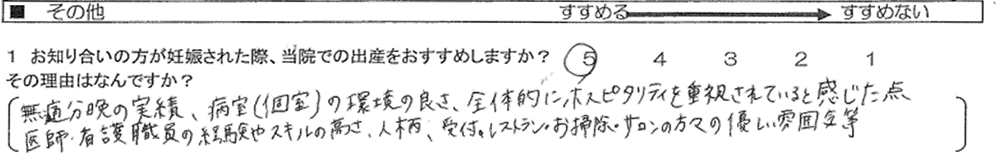 ■ その他 すすめる → すすめない
1 お知り合いの方が妊娠された際、当院での出産をおすすめしますか? 5 4 3 2 1
その理由はなんですか?
無痛分娩の実績、病室(個室)の環境の良さ、全体的にホスピタリティを重視されていると感じた点
医師・看護職員の経験やスキルの高さ、人柄、受付。レストラン・お掃除・サロンの方々の優しい雰囲気等